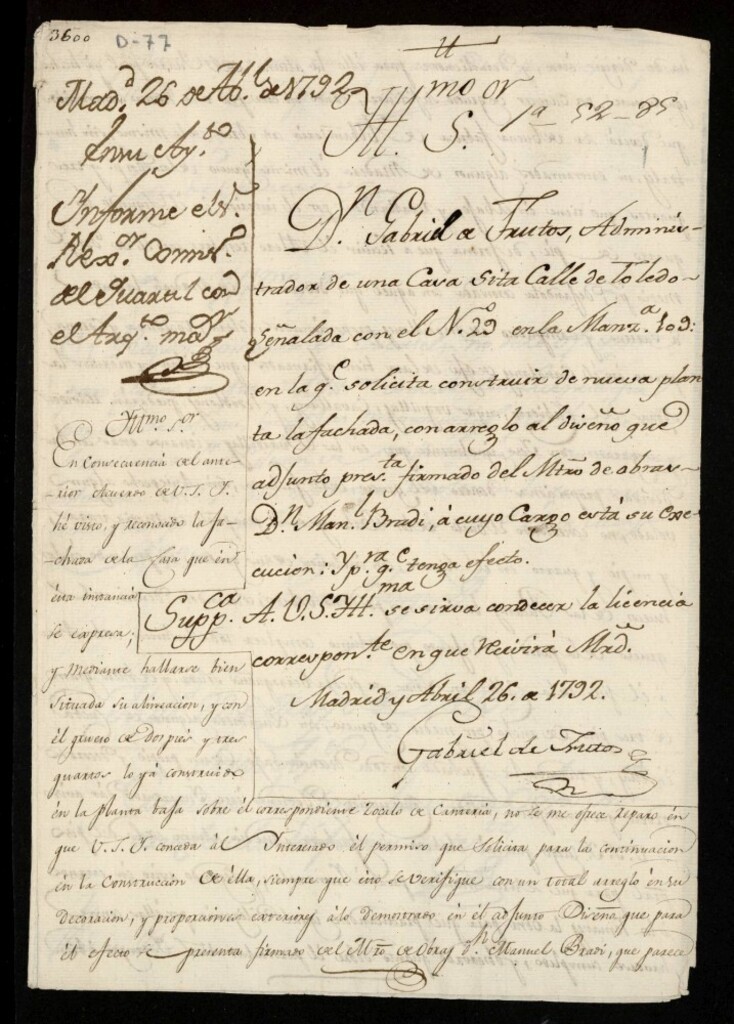 3600
D-77
Mad.d 26 de Ab.l de 1792
En su Ay.to
Informe el S.r
Rex.or Comis.o
del Quartel con
el Arq.to m.or
Yllmo. S.or
1a - 52 - 85
1
D.n Gabriel de Frutos, Adminis-
trador de una Casa Sita Calle de Toledo
Señalada con el N.o 29 en la Manz.a 109:
en la q.e solicita construir de nueva plan
ta la fachada, con arreglo al diseño que
adjunto pres.ta firmado del Mtro de obras
D.n Man.l Bradi, á cuyo Cargo está su exe
cucion: Y p.ra q.e tenga efecto.
Supp.ca A. V.S. Yllma se sirva conceder la licencia
correspon.te en que recivirá Mrd.
Madrid y Abril 26. de 1792.
Gabriel de Frutos
Yllmo. S.or
En Consecuencia del ante-
rior Acuerdo de V.S.I.
hé visto, y reconocido la fa-
chada de la Casa que én
ésta instancia
se expresa;
y mediante hallarse bien
situada su alineacion, y con
él grueso de dos pies y tres
quartos lo yá construido
en la planta baja sobre él correspondiente Zocalo de Canteria, no se me ofrece reparo én
que V.S.I. conceda ál Interesado él permiso que Solicita para la continuacion
én la Construcción de élla, siempre que ésto se verifique con un total arreglo én su
Decoracion, y proporciones exteriores á lo demostrado én él adjunto Diseño que para
él efecto se presenta firmado del Mro. de Obras d.n Manuel Bradi, que parece